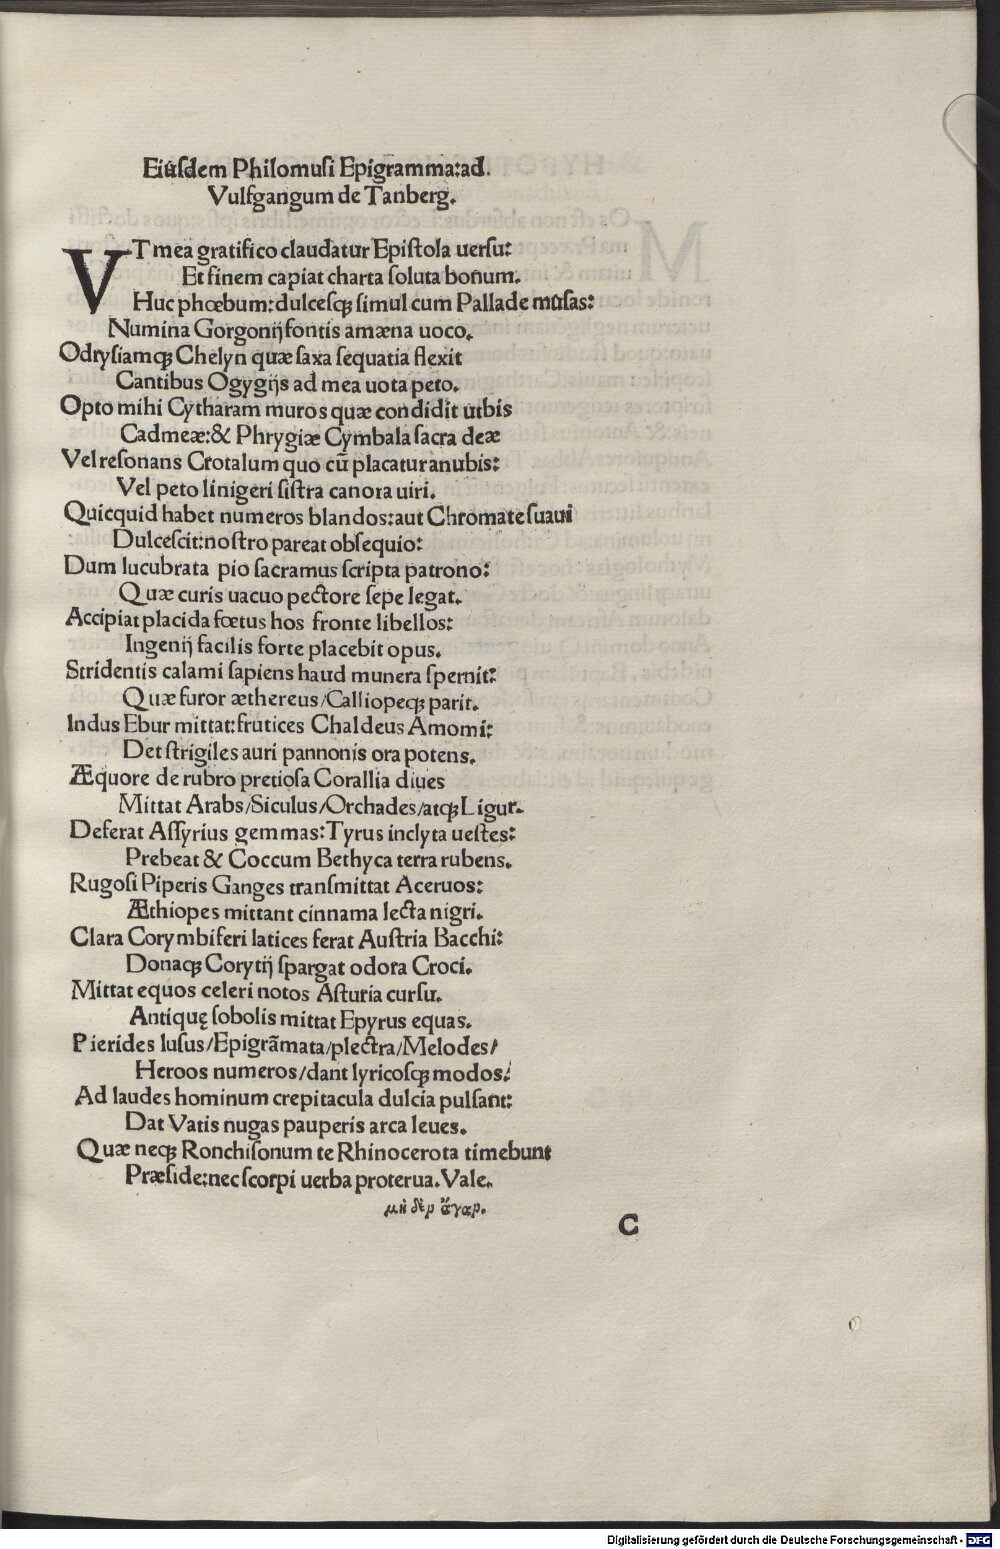 Eiusdem Philomusi Epigramma: ad
Vulfgangum de Tanberg.
VT mea gratifico claudatur Epiſtola uerſu:
Et finem capiat charta ſoluta bonum.
Huc phœbum: dulceſqꝫ ſimul cum Pallade muſas:
Numina Gorgonij fontis amæna uoco.
Odryſiamqꝫ Chelyn quæ ſaxa ſequatia flexit
Cantibus Ogygijs ad mea uota peto.
Opto mihi Cytharam muros quæ condidit urbis
Cadmeæ: & Phrygiæ Cymbala ſacra deæ
Vel reſonans Crotalum quo cū placatur anubis:
Vel peto linigeri ſiſtra canora uiri.
Quicquid habet numeros blandos: aut Chromate ſuaui
Dulceſcit: noſtro pareat obſequio:
Dum lucubrata pio ſacramus ſcripta patrono:
Quæ curis uacuo pectore ſepe legat.
Accipiat placida fœtus hos fronte libellos:
Ingenij facilis forte placebit opus.
Stridentis calami ſapiens haud munera ſpernit:
Quæ furor æthereus/Calliopeqꝫ parit.
Indus Ebur mittat: frutices Chaldeus Amomi:
Det ſtrigiles auri pannonis ora potens.
Æquore de rubro pretioſa Corallia diues
Mittat Arabs/Siculus/Orchades/atqꝫ Ligur.
Deferat Aſſyrius gemmas: Tyrus inclyta ueſtes:
Prebeat & Coccum Bethyca terra rubens.
Rugoſi Piperis Ganges tranſmittat Aceruos:
Æthiopes mittant cinnama lecta nigri.
Clara Corymbiferi latices ferat Auſtria Bacchi:
Donaqꝫ Corytij ſpargat odora Croci.
Mittat equos celeri notos Aſturia curſu.
Antiquę ſobolis mittat Epyrus equas.
Pierides luſus/Epigrāmata/plectra/Melodes/
Heroos numeros/dant lyricoſqꝫ modos:
Ad laudes hominum crepitacula dulcia pulſant:
Dat Vatis nugas pauperis arca leues.
Quæ neqꝫ Ronchiſonum te Rhinocerota timebunt
Præſide: nec ſcorpi uerba proterua. Vale.
μὴ δὲν ἄγαν.
C
Digitalisierung gefördert durch die Deutsche Forschungsgemeinschaft - DFG